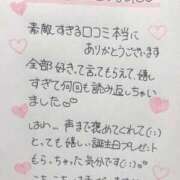 素敵すぎる口コミ本当に
ありがとうございます
全部好きって言ってもらえて嬉し
すぎて何回も読み返しちゃい
ました
しおい、声まで褒めてくれて(;;)
とっても嬉しい誕生日プレゼント
もらっちゃった気分です(;;)